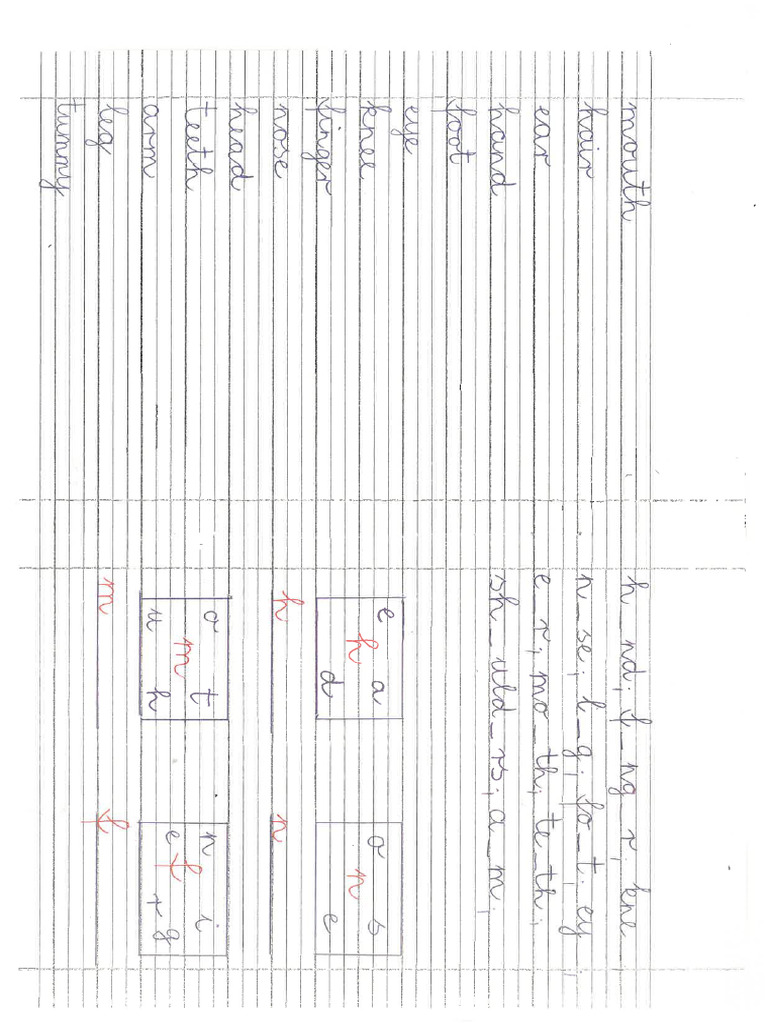 mouth
hair
ear
hand
foot
eye
knee
finger
nose
head
teeth
arm
leg
tummy
h_nd; f_ng_r; kne_
n_se; l_g; fo_t; ey_;
e_r; mo_th; te_th;
sh_uld_rs; a_m;
e a
h
d
o s
n
e
h
n
o t
m
u h
n i
f
e r g
m
f